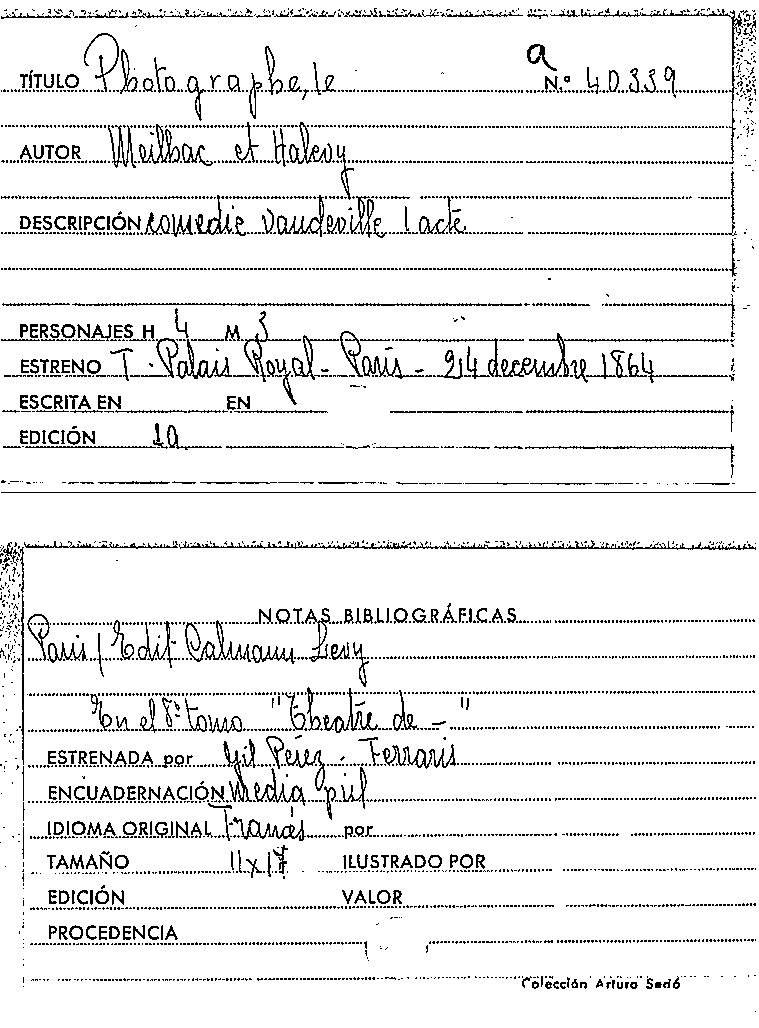 a
TÍTULO Photographe, le N.° 40339
AUTOR Meilhac et Halevy
DESCRIPCIÓN comedie vaudeville 1 acte
PERSONAJES H 4 M 3
ESTRENO T. Palais Royal - Paris - 24 decembre 1864
ESCRITA EN EN
EDICIÓN 1a
NOTAS BIBLIOGRÁFICAS
Paris / Edit. Calmann Levy
En el 8º tomo "Theatre de - "
ESTRENADA por Gil Pérez - Ferraris
ENCUADERNACIÓN media piel
IDIOMA ORIGINAL Francés por
TAMAÑO 11x17 ILUSTRADO POR
EDICIÓN VALOR
PROCEDENCIA
Colección Arturo Sedó